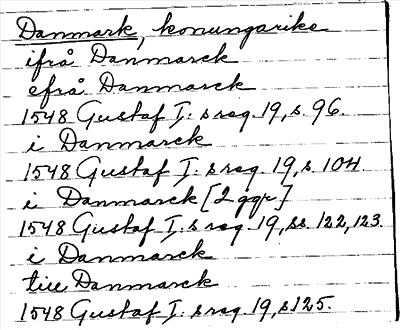 Danmark, konungarike
ifrå Danmarck
efrå Danmarck
1548 Gustaf I:s reg. 19, s. 96.
i Danmarck
1548 Gustaf I:s reg. 19, s. 104
i Danmarck [2 ggr]
1548 Gustaf I:s reg. 19, ss. 122, 123.
i Danmarck
till Danmarck
1548 Gustaf I:s reg. 19, s 125.